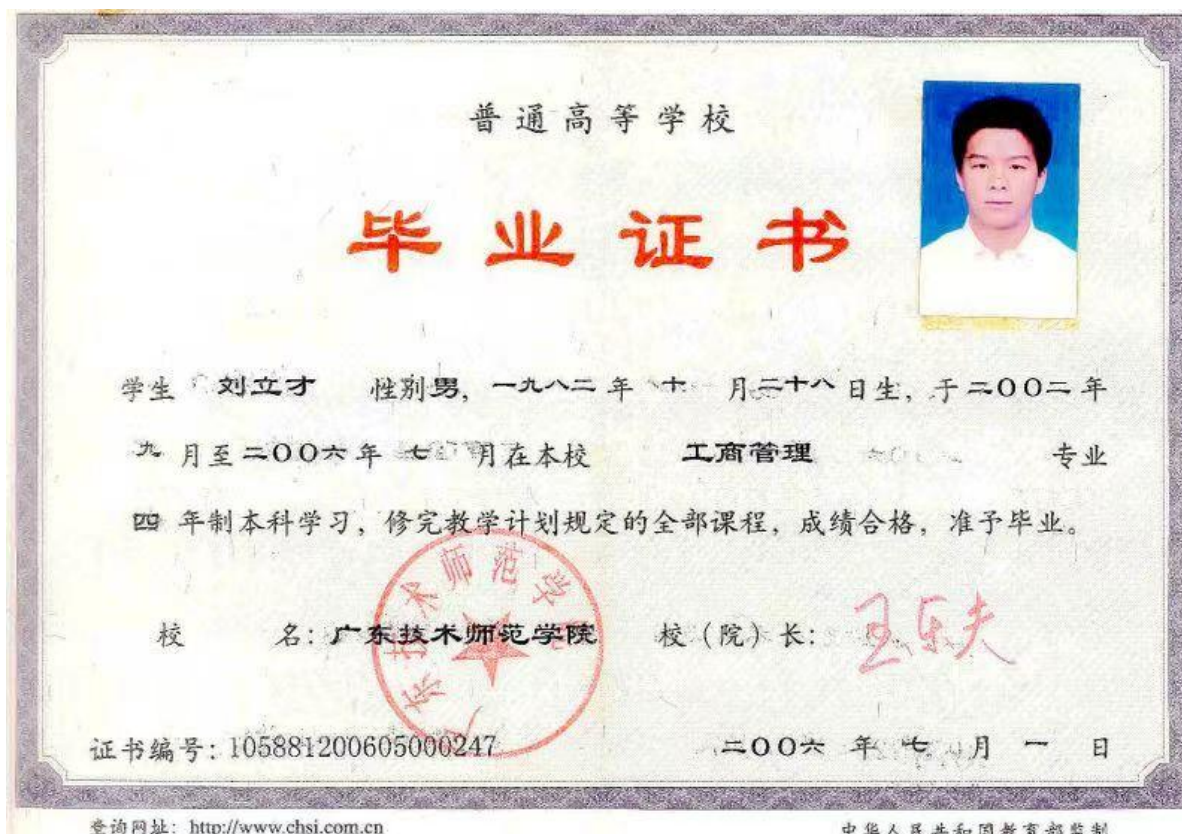 普通高等学校
毕业证书
学生 刘立才 性别男，一九八二年 十 月二十八日生，于二〇〇二年
九 月至二〇〇六年 七 月在本校 工商管理 专业
四 年制本科学习，修完教学计划规定的全部课程，成绩合格，准予毕业。
校 名：广东技术师范学院 校（院）长：王乐夫
广东技术师范学院
证书编号：105881200605000247 二〇〇六 年 七 月 一 日
查询网址：http://www.chsi.com.cn 中华人民共和国教育部监制